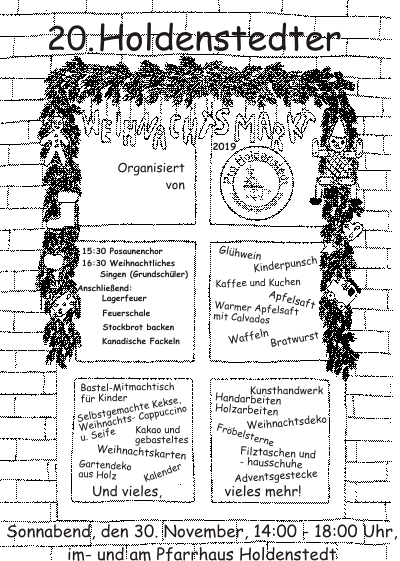 20. Holdenstedter
WEIHNACHTSMARKT
2019
Organisiert
von
Pro Holdenstedt
15:30 Posaunenchor
16:30 Weihnachtliches
Singen (Grundschüler)
Anschließend:
Lagerfeuer
Feuerschale
Stockbrot backen
Kanadische Fackeln
Glühwein
Kinderpunsch
Kaffee und Kuchen
Apfelsaft
Warmer Apfelsaft
mit Calvados
Waffeln
Bratwurst
Bastel-Mitmachtisch
für Kinder
Selbstgemachte Kekse,
Weihnachts- Cappuccino
u. Seife
Kakao und
gebasteltes
Weihnachtskarten
Gartendeko
aus Holz
Kalender
Und vieles,
Kunsthandwerk
Handarbeiten
Holzarbeiten
Weihnachtsdeko
Fröbelsterne
Filztaschen und
- hausschuhe
Adventsgestecke
vieles mehr!
Sonnabend, den 30. November, 14:00 - 18:00 Uhr,
im- und am Pfarrhaus Holdenstedt